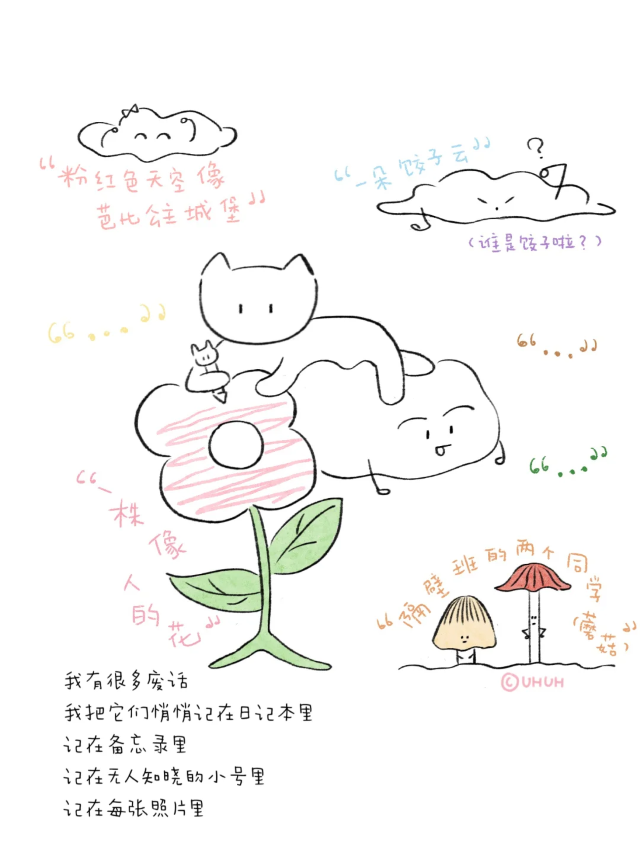 “粉红色天空像
芭比公主城堡”
“一朵饺子云”
?
(谁是饺子啦?)
“...”
“...”
“...”
“一株像
人的花”
“隔壁班的两个同学(蘑菇)”
©UHUH
我有很多废话
我把它们悄悄记在日记本里
记在备忘录里
记在无人知晓的小号里
记在每张照片里